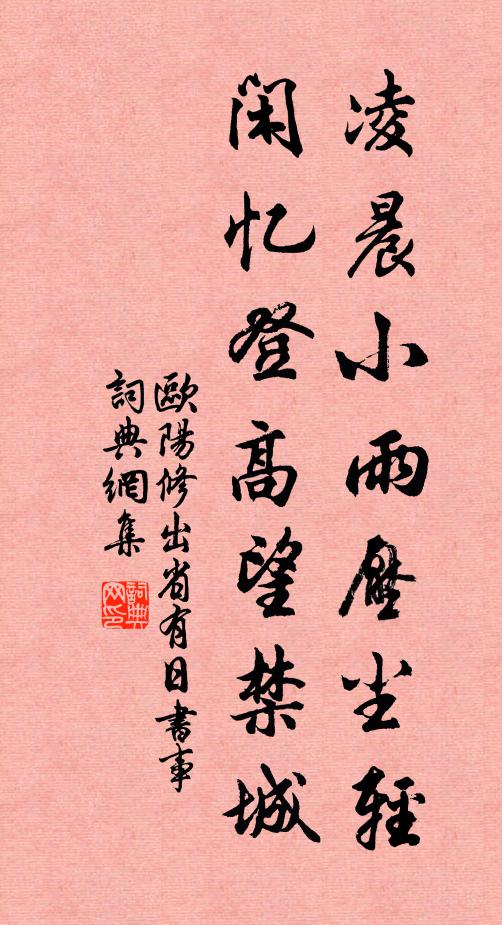 凌晨小雨壓尘輕
闲忆登高望禁城
歐陽修出省有日書事
詞典網集
詞典网印